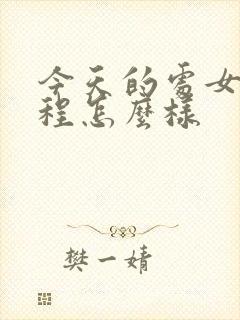 今天的處女
程怎麼樣
樊一婧